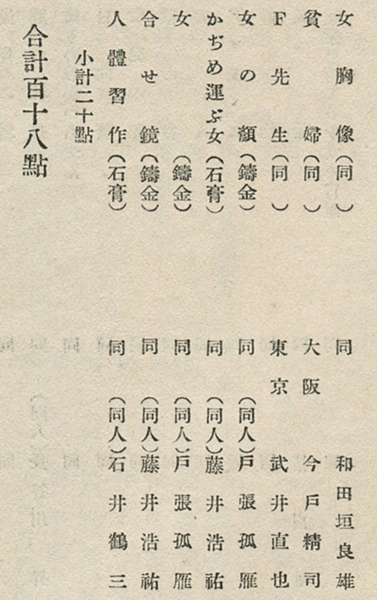 女胸像（同） 同 和田垣良雄
貧婦（同） 大阪 今戸精司
F先生（同） 東京 武井直也
女の顏（鑄金） 同（同人）戸張孤雁
かぢめ運ぶ女（石膏） 同（同人）藤井浩祐
女（鑄金） 同（同人）戸張孤雁
合せ鏡（鑄金） 同（同人）藤井浩祐
人體習作（石膏） 同（同人）石井鶴三
小計二十點
合計百十八點